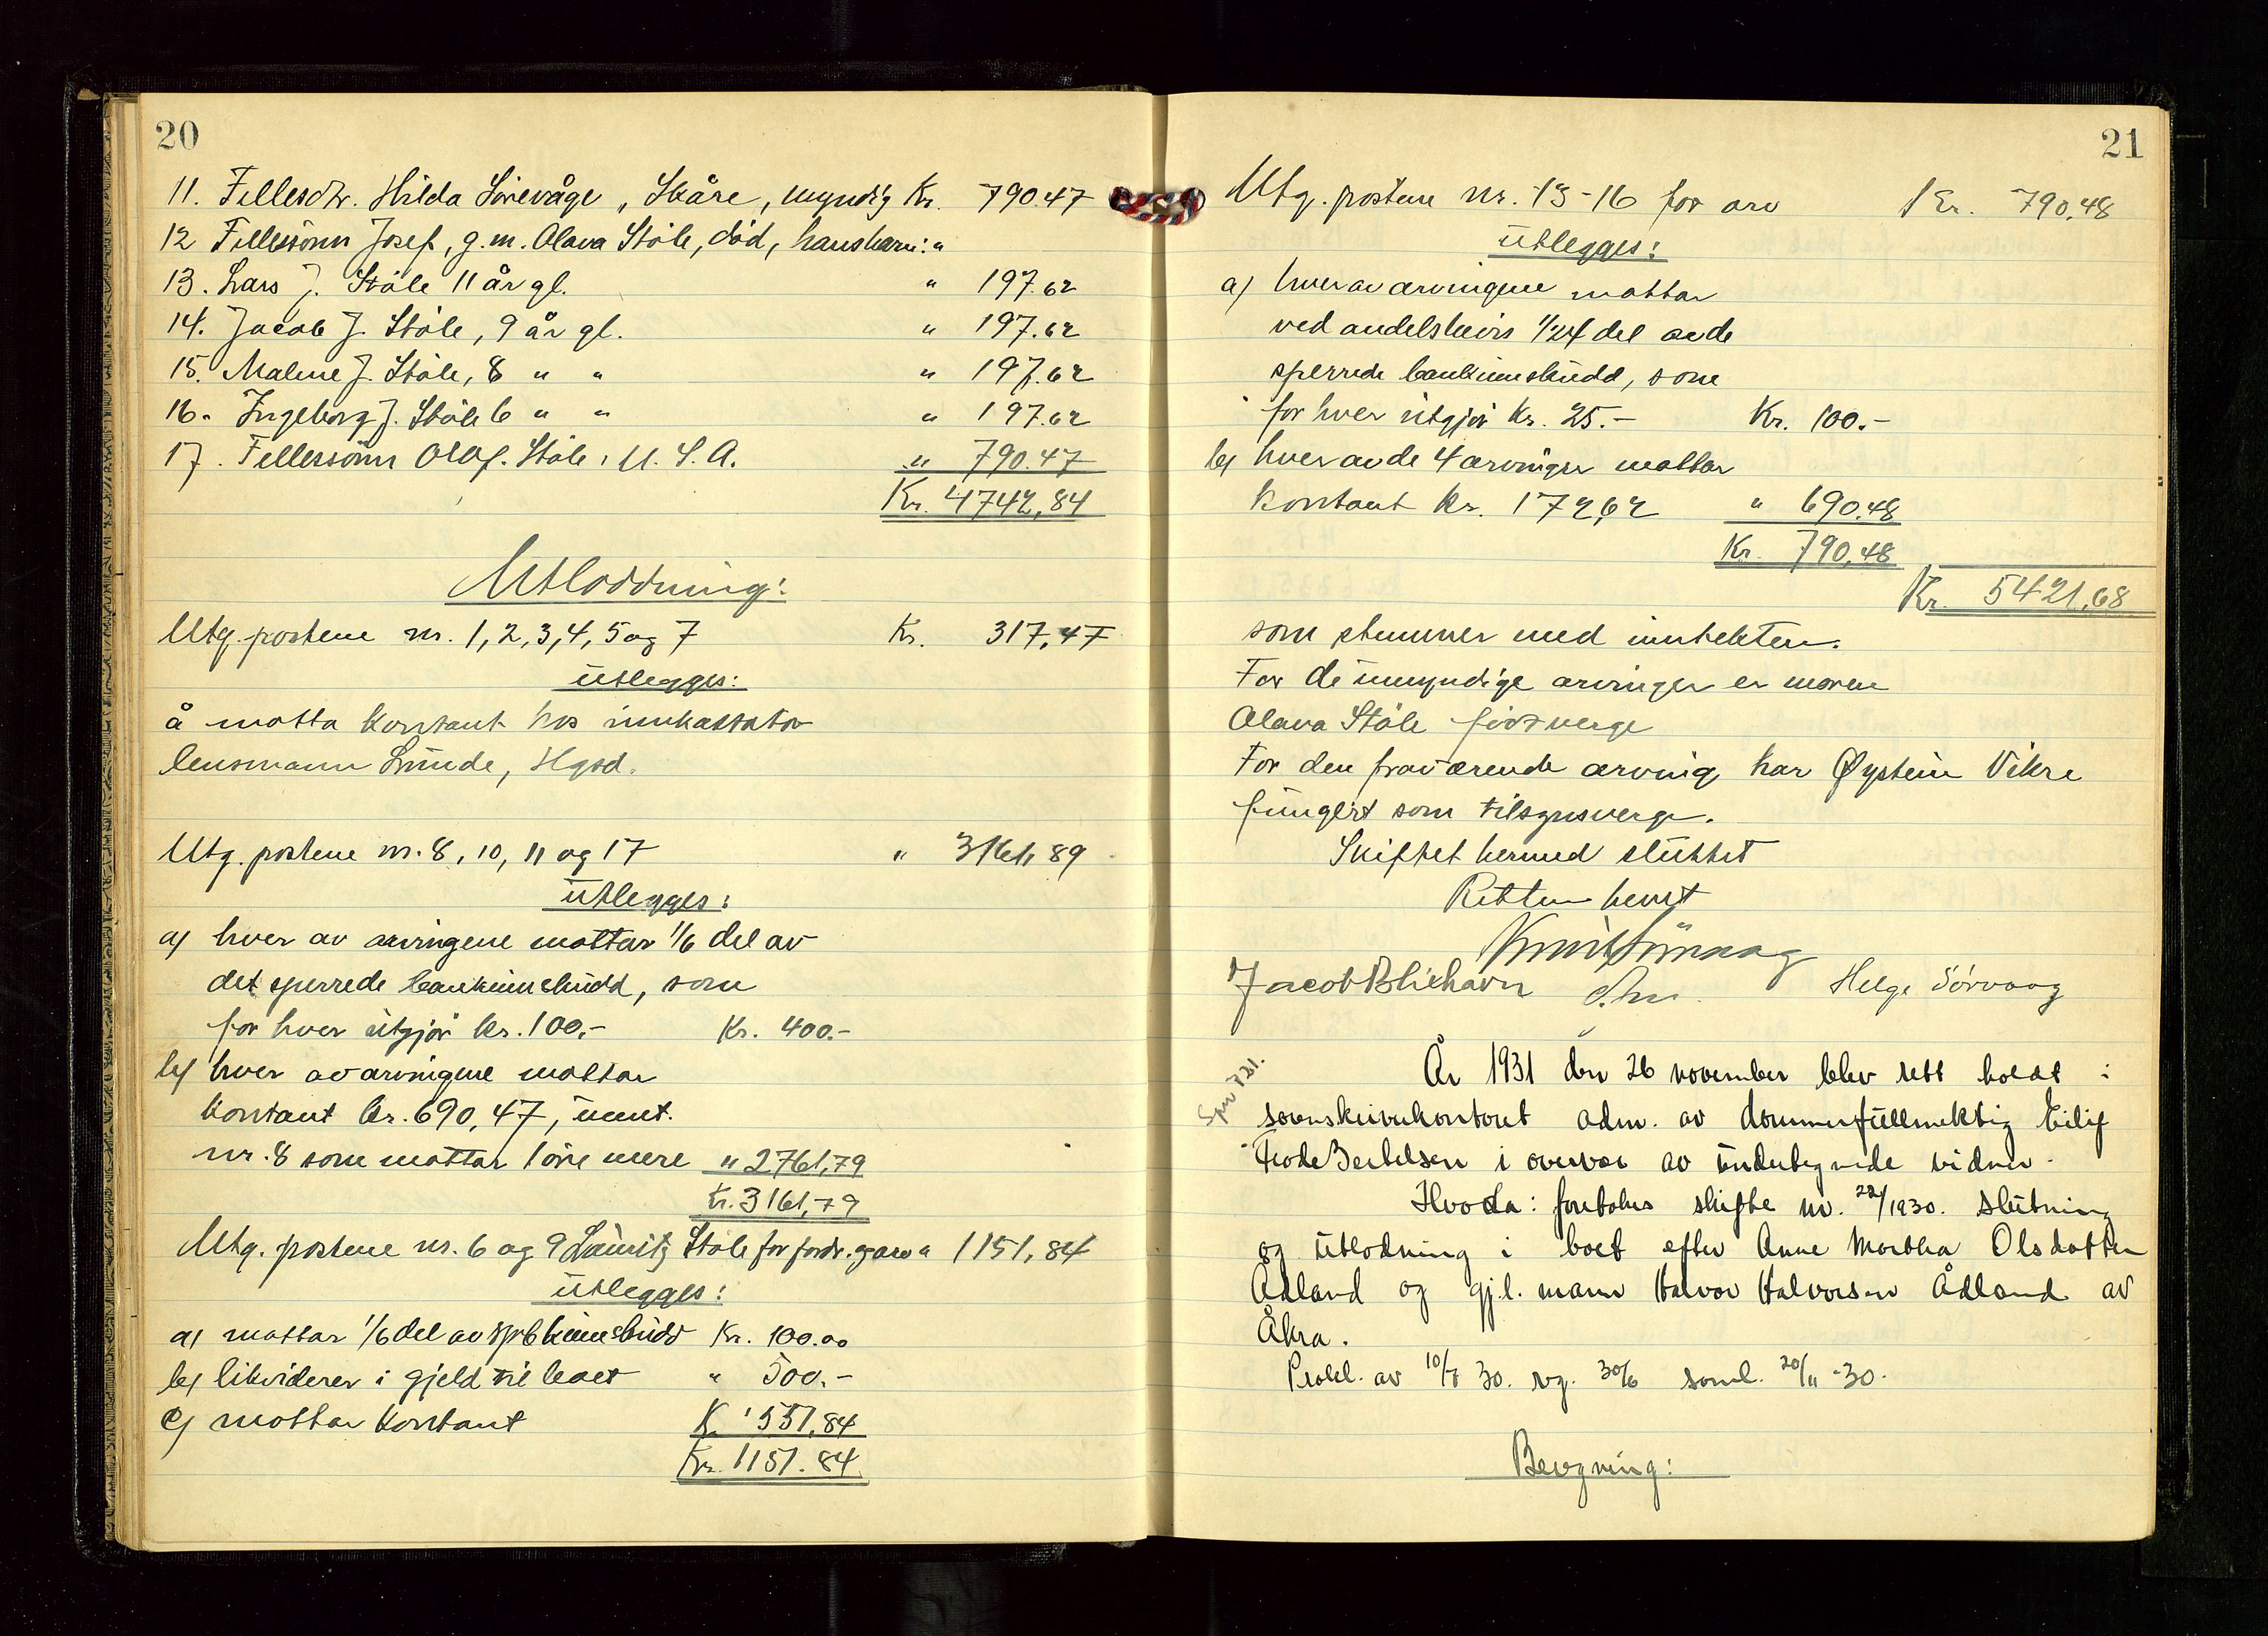 20
11. Fellesdtr. Hilda Sörevåge, Skåre, myndig Kr. 790.47
12 Fellessönn Josef, g.m. Olava Stöle, död, hans barn: "
13. Lars J. Stöle 11 år gl. " 197.62
14. Jacob J. Stöle, 9 år gl. " 197.62
15. Malene J. Stöle, 8 " " " 197.62
16. Ingeborg J. Stöle 6 " " " 197.62
17. Fellessönn Olaf. Stöle, U.S.A. " 790.47
Kr. 4742,84
Utloddning:
Utg. postene nr. 1, 2, 3, 4, 5 og 7 Kr. 317,47
utlegges:
å motta kontant hos innkassator
lensmann Lunde, Hgsd.
Utg. postene nr. 8, 10, 11 og 17 " 3161,89
utlegges:
a) hver av arvingene mottar 1/6 del av
det sperrede bankinnskudd, som
for hver utgjör kr. 100,- Kr. 400.-
b) hver av arvingene mottar
kontant kr. 690,47, unnt.
nr. 8 som mottar 1 öre mere " 2761,79
Kr. 3161,79
Utg. postene nr. 6 og 9 Lauritz Stöle for fordr. og arv " 1151,84
utlegges:
a) mottar 1/6 del av spb innskudd Kr. 100.00
b) likviderer i gjeld til boet " 500.-
c) mottar kontant K. 551,84
Kr. 1151.84
21
Utg. postene nr. 13-16 for arv Kr. 790,48
utlegges:
a) hver av arvingene mottar
ved andelsbevis 1/24 del av de
sperrede bankinnskudd, som
for hver utgjör Kr. 25.- Kr. 100.-
b) hver av de 4 arvinger mottar
kontant kr. 172,62 " 690.48
Kr. 790,48
Kr. 5421,68
som stemmer med inntekten.
For de umyndige arvinger er moren
Olava Stöle födt verge
For den fraværende arving har Øystein Vikre
fungert som tilsynsverge.
Skiftet hermed sluttet
Retten hevet
Jacob Blikhavn Helge Sörvaag
År 1931 den 26 november blev rett holdt i
sorenskriverkontoret adm. av dommerfullmektig Eilif
Frode Bertelsen i overvær av undertegnede vidner.
Hvoda: foretokes skifte nr. 22/1930. Slutning
og utlodning i boet efter Anne Martha Olsdatter
Ådland og gj.l. mann Halvor Halvorsen Ådland av
Åkra.
Prokl. av 10/7 30. rg. 30/6 saml. 20/11-30.
Beregning: